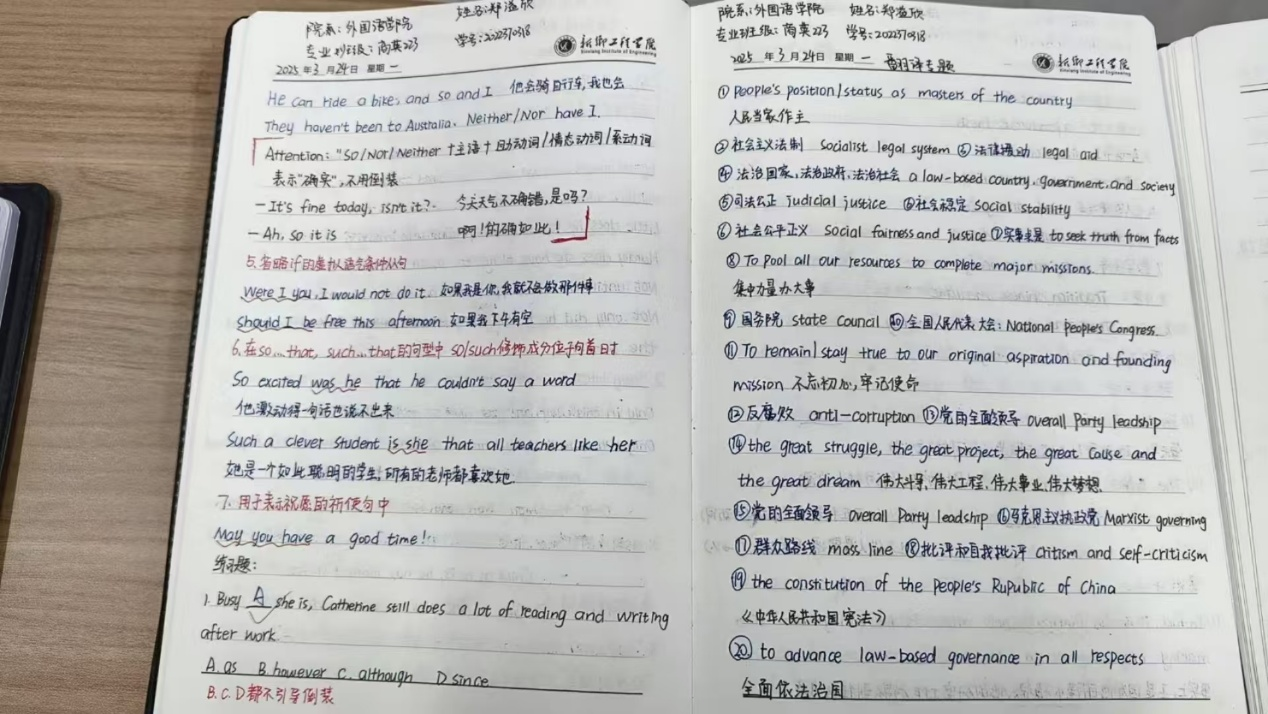 院系:外国语学院 姓名:郑溢欣
专业班级:商英223 学号:2022370318
新乡工程学院
Xinxiang Institute of Engineering
2025年3月24日 星期一
He can ride a bike, and so and I 他会骑自行车,我也会
They haven't been to Australia. Neither/Nor have I.
Attention: "So/Nor/Neither+主语+助动词/情态动词/系动词
表示"确实",不用倒装
—It's fine today, isn't it? 今天天气不确错,是吗?
—Ah, so it is 啊!的确如此!
5.省略if的虚拟语气条件从句
Were I you, I would not do it. 如果我是你,我就不会做那件事
Should I be free this afternoon 如果我下午有空
6.在so...that, such...that的句型中 so/such修饰成分位于句首时
So excited was he that he couldn't say a word
他激动得一句话也说不出来
Such a clever student is she that all teachers like her
她是一个如此聪明的学生,所有的老师都喜欢她.
7.用于表示祝愿的祈使句中
May you have a good time!
练习题:
1. Busy A she is, Catherine still does a lot of reading and writing
after work
A.as B.however C.although D since
B.C.D都不引导倒装
院系:外国语学院 姓名:郑溢欣
专业班级:商英223 学号:2022370318
新乡工程学院
Xinxiang Institute of Engineering
2025年3月24日 星期一 翻译专题
① People's position/status as masters of the country
人民当家作主
②社会主义法制 Socialist legal system ③法律援助 legal aid
④法治国家,法治政府,法治社会 a law-based country, government, and society
⑤司法公正 judicial justice ⑥社会稳定 social stability
⑥社会公平正义 Social fairness and justice ⑦实事求是 to seek truth from facts
⑧ To pool all our resources to complete major missions.
集中力量办大事
⑨国务院 state Council ⑩全国人民代表大会: National people's Congress.
⑪ To remain/stay true to our original aspiration and founding
mission 不忘初心,牢记使命
⑫反腐败 anti-corruption ⑬党的全面领导 overall Party leadship
⑭the great struggle, the great project, the great cause and
the great dream 伟大斗争,伟大工程,伟大事业,伟大梦想
⑮党的全面领导 overall Party leadship ⑯马克思主义执政党 Marxist governing
⑰群众路线 mass line ⑱批评和自我批评 critism and self-criticism
⑲ the constitution of the people's Rupublic of China
《中华人民共和国宪法》
⑳ to advance law-based governance in all respects
全面依法治国